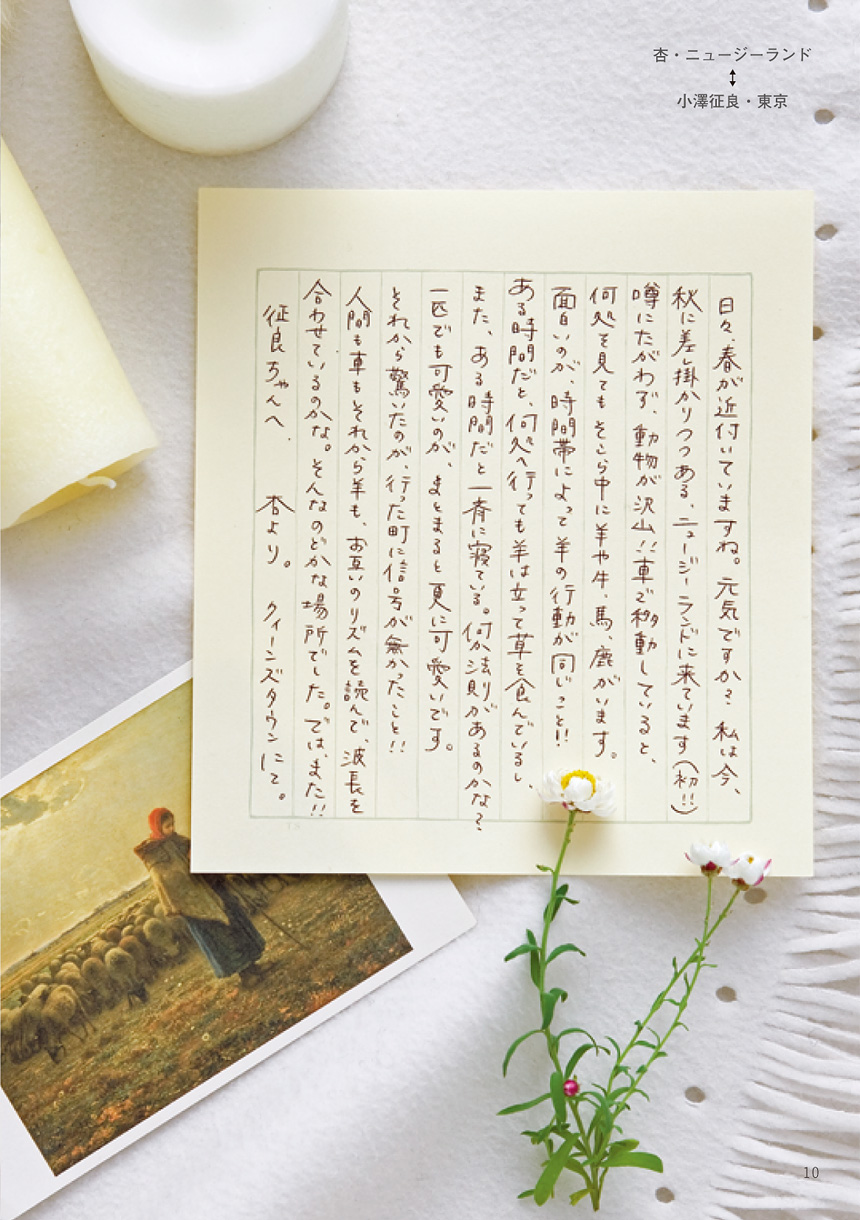 杏・ニュージーランド
↕
小澤征良・東京
日々、春が近付いていますね。元気ですか？私は今、
秋に差し掛かりつつある、ニュージーランドに来ています（初!!）
噂にたがわず、動物が沢山!!車で移動していると、
何処を見てもそこら中に羊や牛、馬、鹿がいます。
面白いのが、時間帯によって羊の行動が同じこと!!
ある時間だと、何処へ行っても羊は立って草を食んでいるし、
また、ある時間だと一斉に寝ている。何か法則があるのかな？
一匹でも可愛いのが、まとまると更に可愛いです。
それから驚いたのが、行った町に信号が無かったこと!!
人間も車もそれから羊も、お互いのリズムを読んで、波長を
合わせているのかな。そんなのどかな場所でした。では、また!!
征良ちゃんへ　杏より。　クィーンズタウンにて。
10